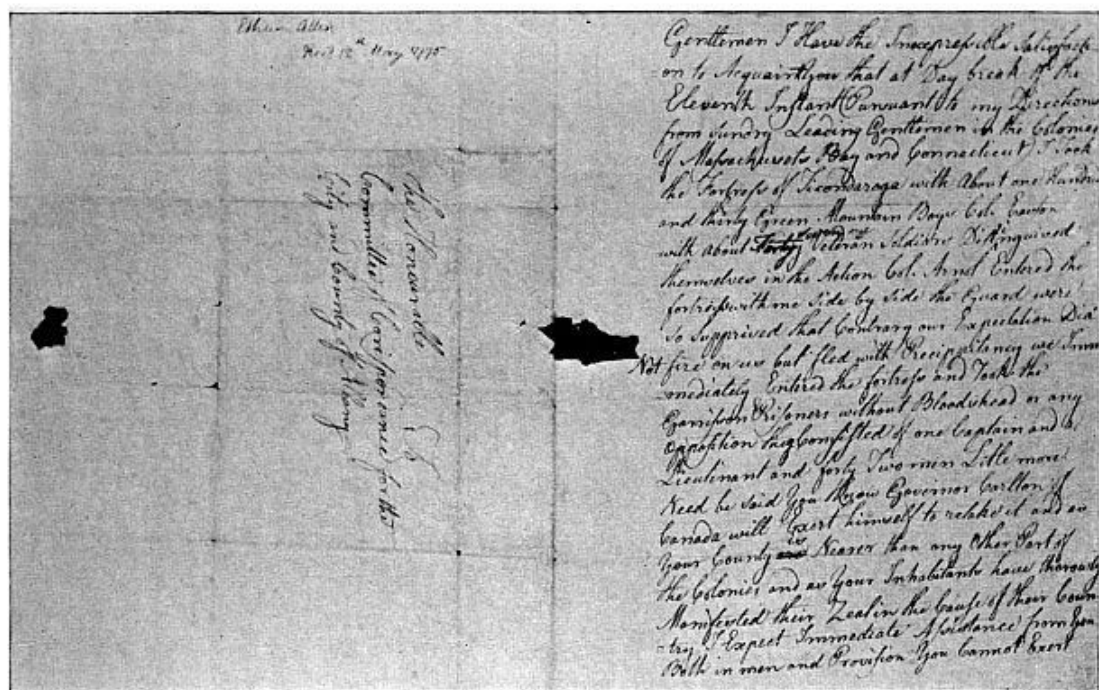 Ethan Allen
Rec'd 12th May 1775
To
The Honourable
Committee of Corrisponance for the
City and County of Albany
Gentlemen I Have the Inexpressible Satisfacti-
-on to Acquaint You that at Day break of the
Eleventh Instant (Pursuant to my Directions
from Sundry Leading Gentlemen in the Colonies
of Massachusets Bay and Connecticut) I Took
the Fortress of Ticondaroga with About one Hundred
and thirty Green Mountain Boys Col. Easton
with about Forty Veteran Soldiers Distinguised
themselves in the Action Col. Arnol Entered the
fortress with me Side by Side the Guard were
So Supprised that Contrary our Expectation Did
Not fire on us but fled with Precipitancy we Imm
-mediately Entered the fortress and Took the
Garrison Prisoners without Bloodshead or any
Opposition they Consisted of one Captain and a
Lieutenant and forty Two men Little more
Need be said You Know Governor Carlton of
Canada will Exert himself to retake it and as
Your County is Nearer than any Other Part of
the Colonies and as Your Inhabitants have thoroughly
Manifested their Zeal in the Cause of their Coun-
-try I Expect Immediate Assistance from You
Both in men and Provision You Cannot Exert